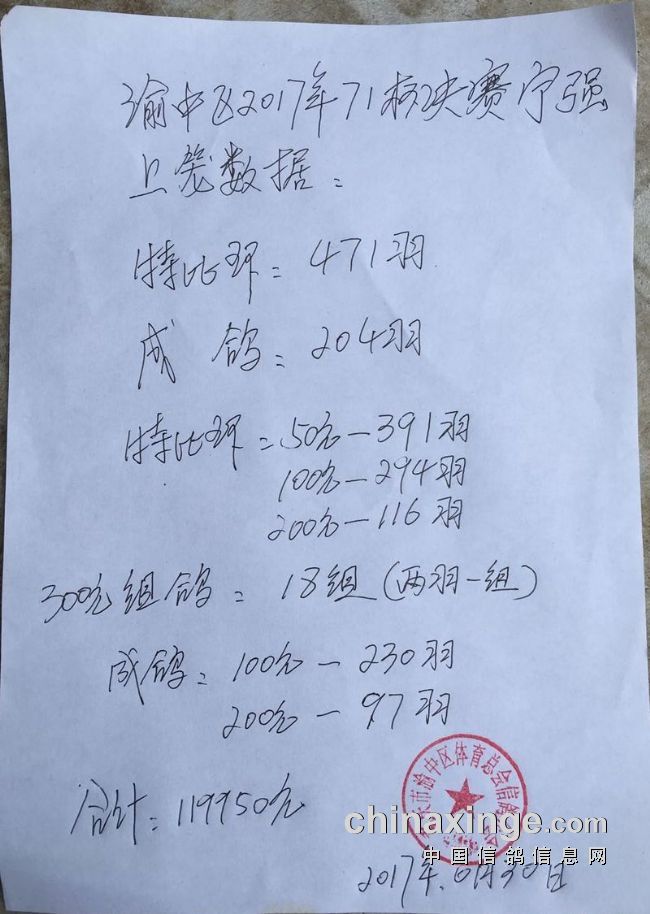 渝中区2017年71核决赛宁强
上笼数据：
特比环：471羽
成鸽：204羽
特比环：50元—391羽
100元—294羽
200元—116羽
300元组鸽：18组(两羽一组)
成鸽：100元—230羽
200元—97羽
合计：119950元
市渝中区体育总会信鸽
chinaxinge.com
中国信鸽信息网
2017年6月30日